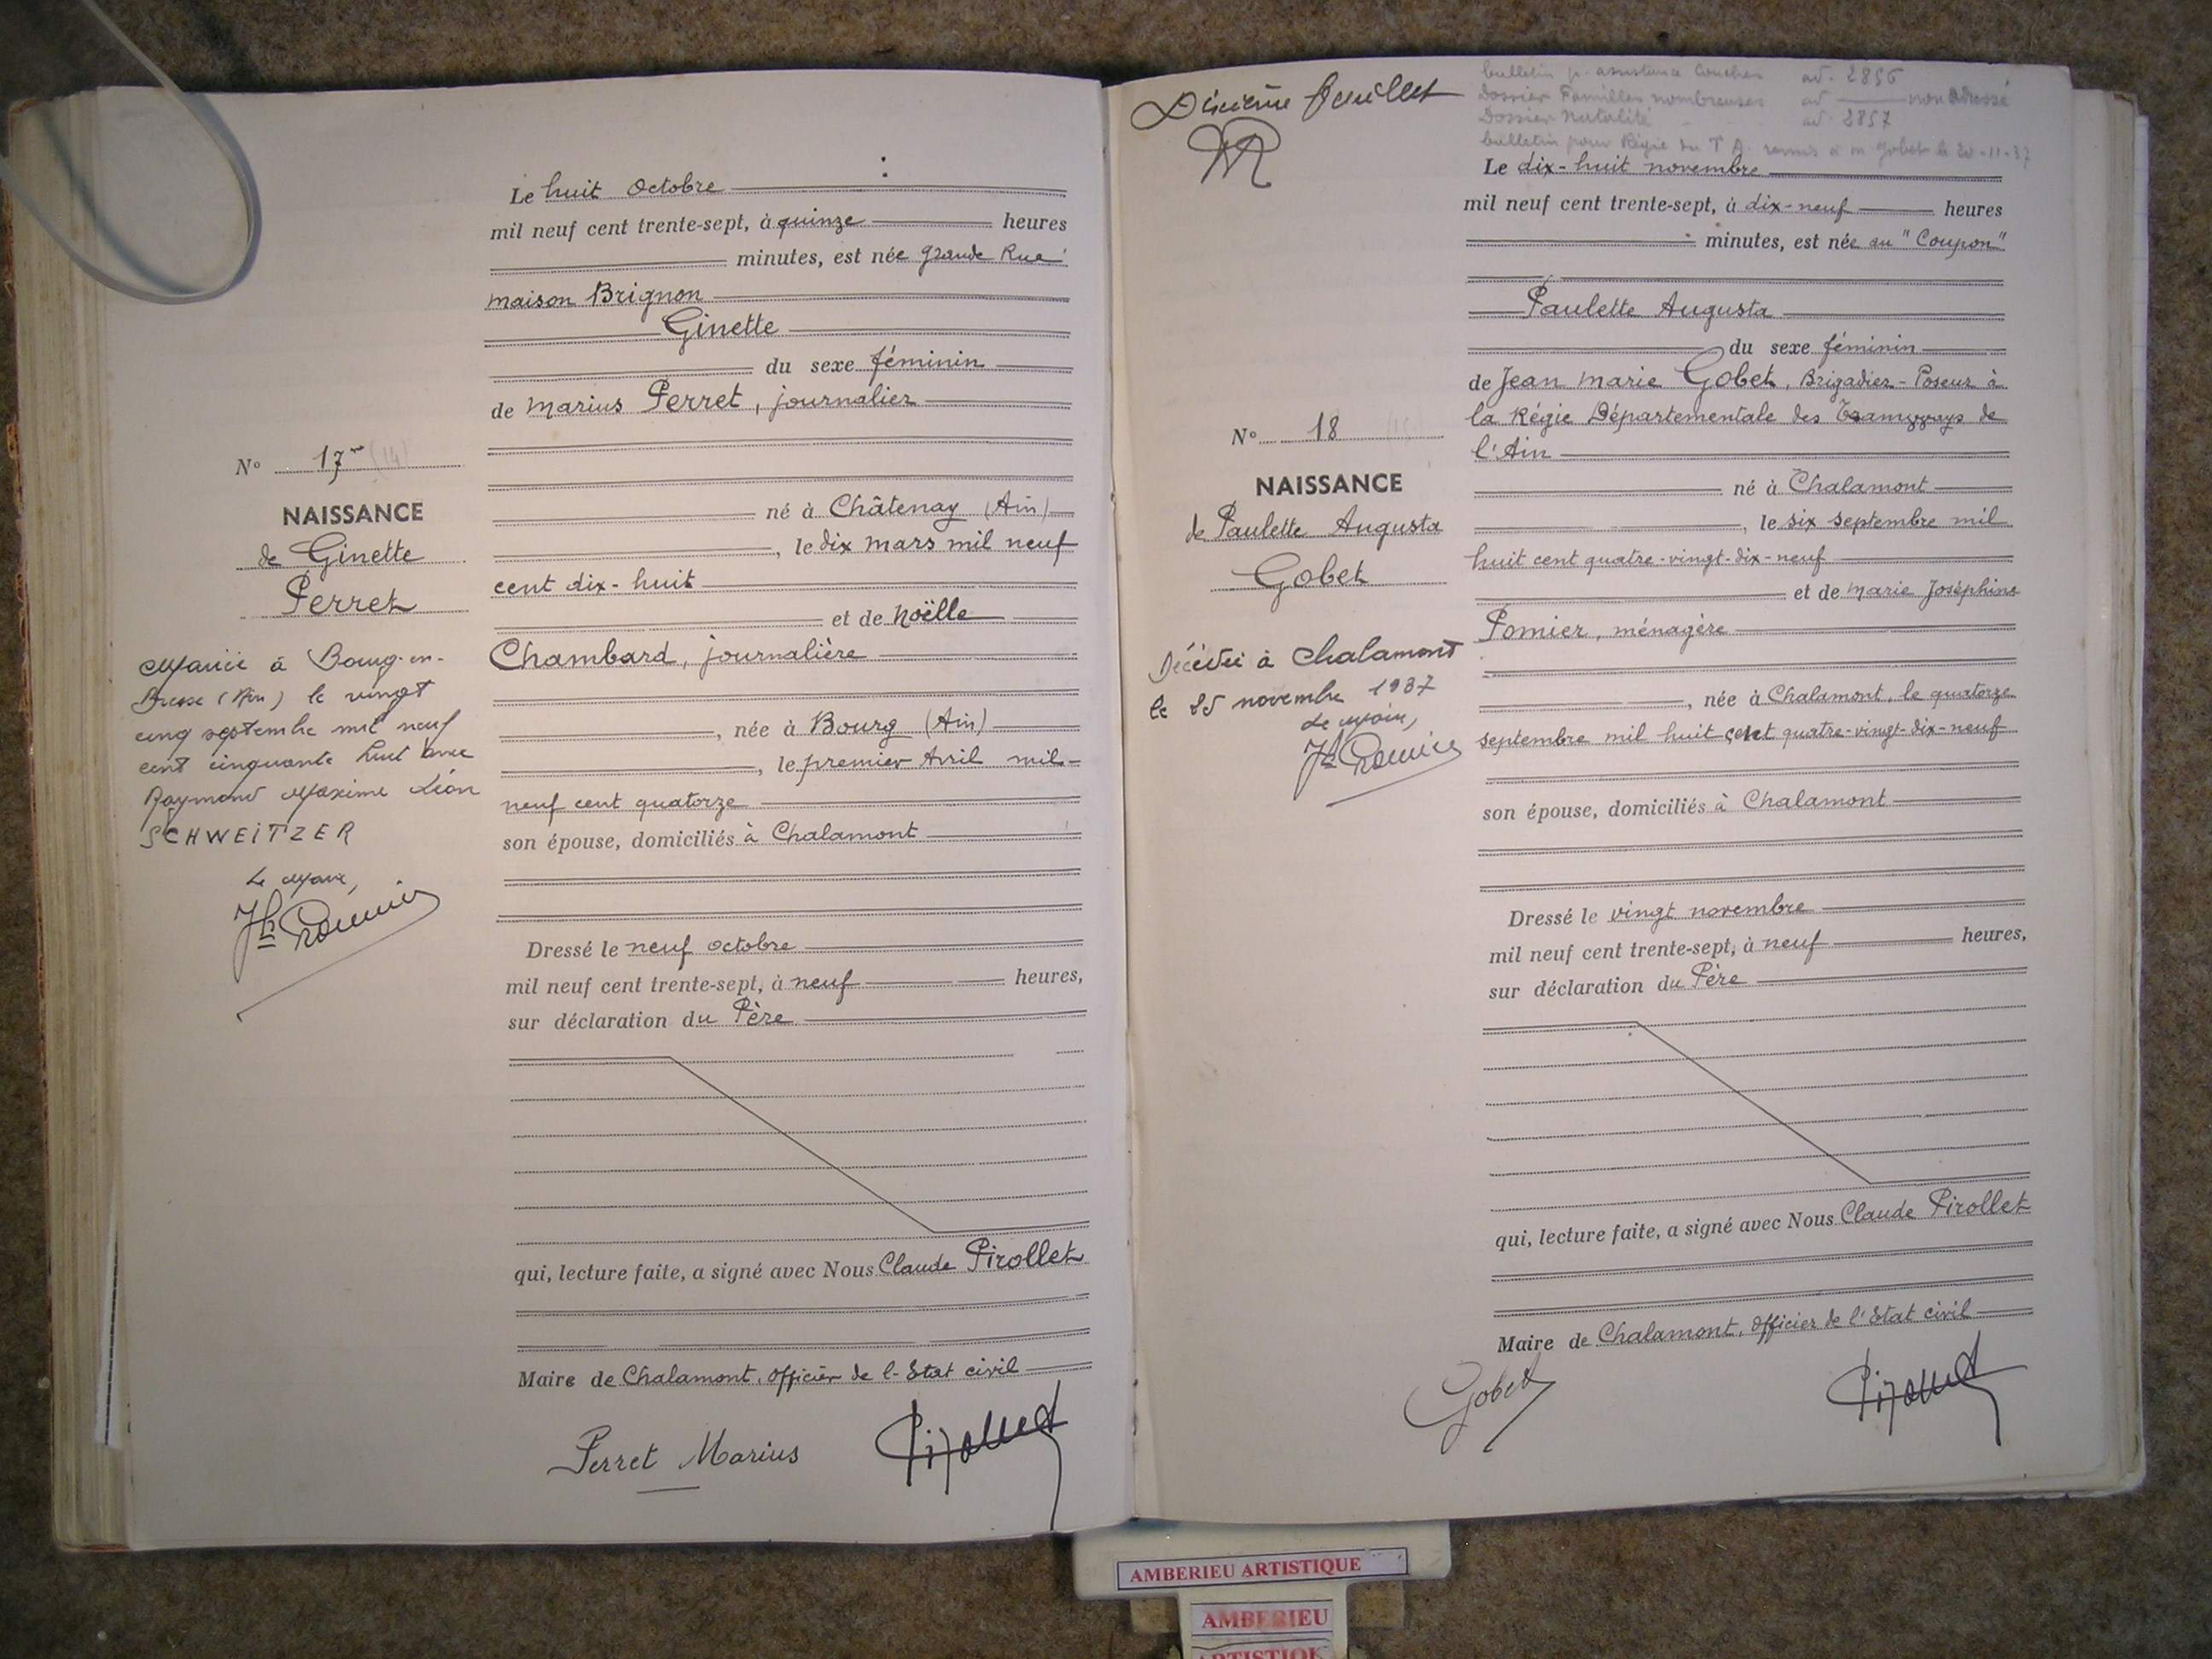 Le huit Octobre
mil neuf cent trente-sept, à quinze heures
minutes, est née Grande Rue
maison Brignon
Ginette
du sexe féminin
de Marius Perret, journalier
né à Châtenay (Ain)
, le dix mars mil neuf
cent dix-huit
et de Noëlle
Chambard, journalière
, née à Bourg (Ain)
, le premier Avril mil
neuf cent quatorze
son épouse, domiciliés à Chalamont
Dressé le neuf octobre
mil neuf cent trente-sept, à neuf heures,
sur déclaration du Père
qui, lecture faite, a signé avec Nous Claude Pirollet
Maire de Chalamont, officier de l'Etat civil
Perret Marius Pirollet
N° 17 (14)
NAISSANCE
de Ginette
Perret
Mariée à Bourg-en-
Bresse (Ain) le vingt
cinq septembre mil neuf
cent cinquante huit avec
Raymond Maxime Léon
SCHWEITZER
Le Maire,
Dixième feuillet
bulletin p. assistance couches av. 2856
Dossier Familles nombreuses av non adressé
Dossier Natalité av. 2857
bulletin pour Régie du T A remis à m Gobet le 20-11-37
Le dix-huit novembre
mil neuf cent trente-sept, à dix-neuf heures
minutes, est née au "Coupon"
Paulette Augusta
du sexe féminin
de Jean Marie Gobet, Brigadier-Poseur à
la Régie Départementale des Tramways de
l'Ain
né à Chalamont
, le six septembre mil
huit cent quatre-vingt-dix-neuf
et de Marie Joséphine
Pomier, ménagère
, née à Chalamont, le quatorze
septembre mil huit cent quatre-vingt-dix-neuf
son épouse, domiciliés à Chalamont
Dressé le vingt novembre
mil neuf cent trente-sept, à neuf heures,
sur déclaration du Père
qui, lecture faite, a signé avec Nous Claude Pirollet
Maire de Chalamont, officier de l'Etat civil
Gobet Pirollet
N° 18
NAISSANCE
de Paulette Augusta
Gobet
Décédée à Chalamont
le 25 novembre 1937
Le Maire,
AMBERIEU ARTISTIQUE
AMBERIEU